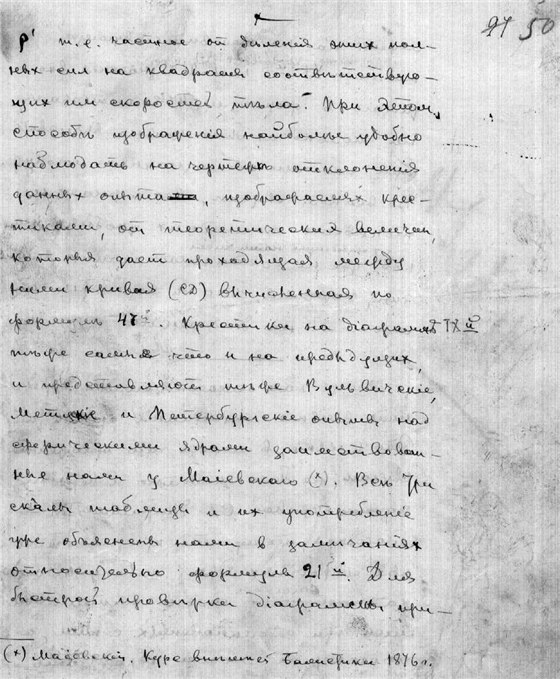 97 50
ρ' т.е. частное от деленiя этих пол-
ных сил на квадраты соотвѣтствую-
щих им скоростей тѣла. При этом
способѣ изображенiя наиболѣе удобно
наблюдать на чертежѣ отклоненiя
данных опыта, изображаемых крес-
тиками, от теоретических величин,
которыя дает проходящая между
ними кривая (CD) вычисленная по
формулѣ 47й. Крестики на дiаграммѣ IXй
тѣже самые что и на предъидущих,
и представляют тѣже Вульвичскiе,
Метцкiе и Петербургскiе опыты над
сферическими ядрами заимствован-
ные нами у Маiевскаго (x). Всѣ три
скалы таблицы и их употребленiе
уже объяснены нами в замѣчанiях
относительно формулы 21й. Для
быстрой провѣрки дiаграммы при-
(x) Маiевскiй. Курс внѣшней Балистики 1876 г.